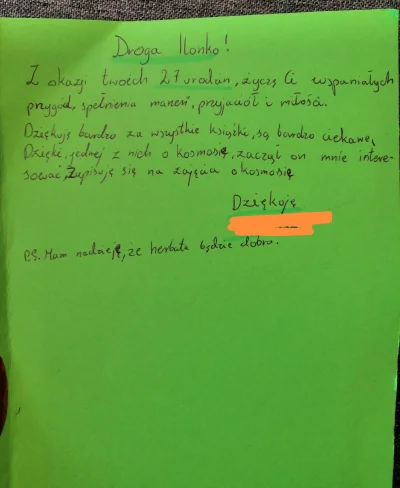 Droga Ilonko!
Z okazji twoich 27 urodzin, życzę Ci wspaniałych
przygód, spełnienia marzeń, przyjaciół i miłości.
Dziękuję bardzo za wszystkie książki, są bardzo ciekawe,
Dzięki, jednej z nich o kosmosię, zaczął on mnie intere-
sować, Zapisuję się na zajęcia o kosmosię
Dziękuję
P.S. Mam nadzieję, że herbata będzie dobra.